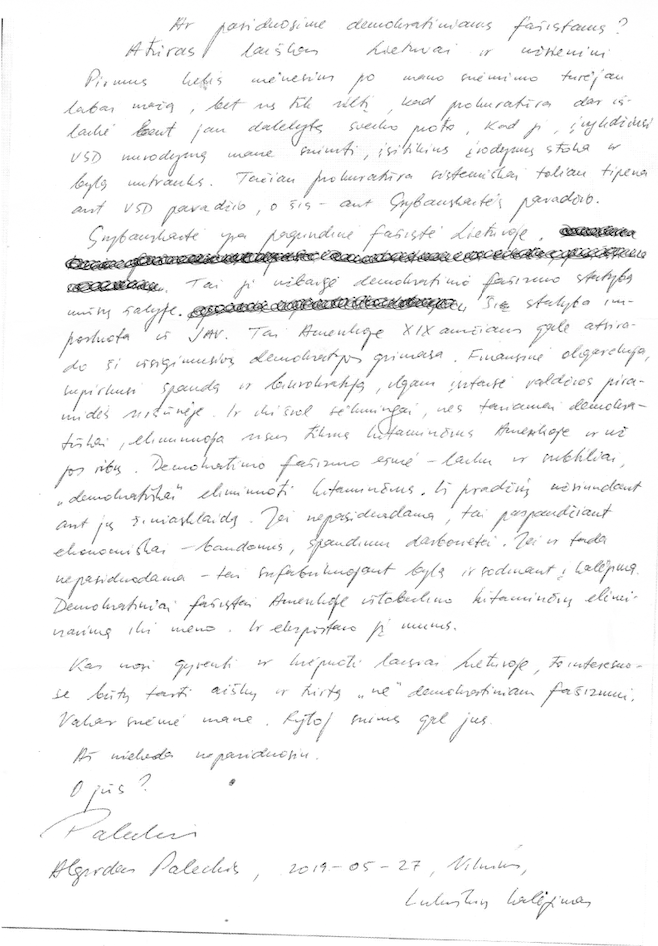 Ar pasiduosime demokratiniams fašistams?
Atviras laiškas Lietuvai ir užsieniui
Pirmus kelis mėnesius po mano suėmimo turėjau
labai mažą, bet vis tik viltį, kad prokuratūra dar iš-
laikė bent jau dalelytę sveiko proto, kad ji, įvykdžiusi
VSD nurodymą mane suimti, įsitikins įrodymų stoka ir
bylą nutrauks. Tačiau prokuratūra sistemiškai toliau tipena
ant VSD pavadžio, o šis - ant Grybauskaitės pavadžio.
Grybauskaitė yra pagrindinė fašistė Lietuvoje.
Tai ji užbaigė demokratinio fašizmo statybą
mūsų šalyje. Ši statyba im-
portuota iš JAV. Tai Amerikoje XIX amžiaus gale atsira-
do ši išsigimusios demokratijos grimasa. Finansinė oligarchija,
supirkusi spaudą ir biurokratiją, ilgam įsitaisė valdžios pira-
midės viršūnėje. Ir iki šiol sėkmingai, nes tariamai demokra-
tiškai, eliminuoja visus tikrus kitaminčius Amerikoje ir už
jos ribų. Demokratinio fašizmo esmė - laiku ir subtiliai,
„demokratiškai" eliminuoti kitaminčius. Iš pradžių užsiundant
ant jų žiniasklaidą. Jei nepasiduodama, tai paspaudžiant
ekonomiškai - baudomis, spaudimu darbovietei. Jei ir tada
nepasiduodama - tai sufabrikuojant bylą ir sodinant į kalėjimą.
Demokratiniai fašistai Amerikoje ištobulino kitaminčių elimi-
navimą iki meno. Ir eksportavo jį mums.
Kas nori gyventi ir kvėpuoti laisvai Lietuvoje, to interesuo-
se būtų tarti aiškų ir tvirtą „ne" demokratiniam fašizmui.
Vakar suėmė mane. Rytoj suims gal jus.
Aš niekada nepasiduosiu.
O jūs?
Paleckis
Algirdas Paleckis, 2019-05-27, Vilnius,
Lukiškių kalėjimas